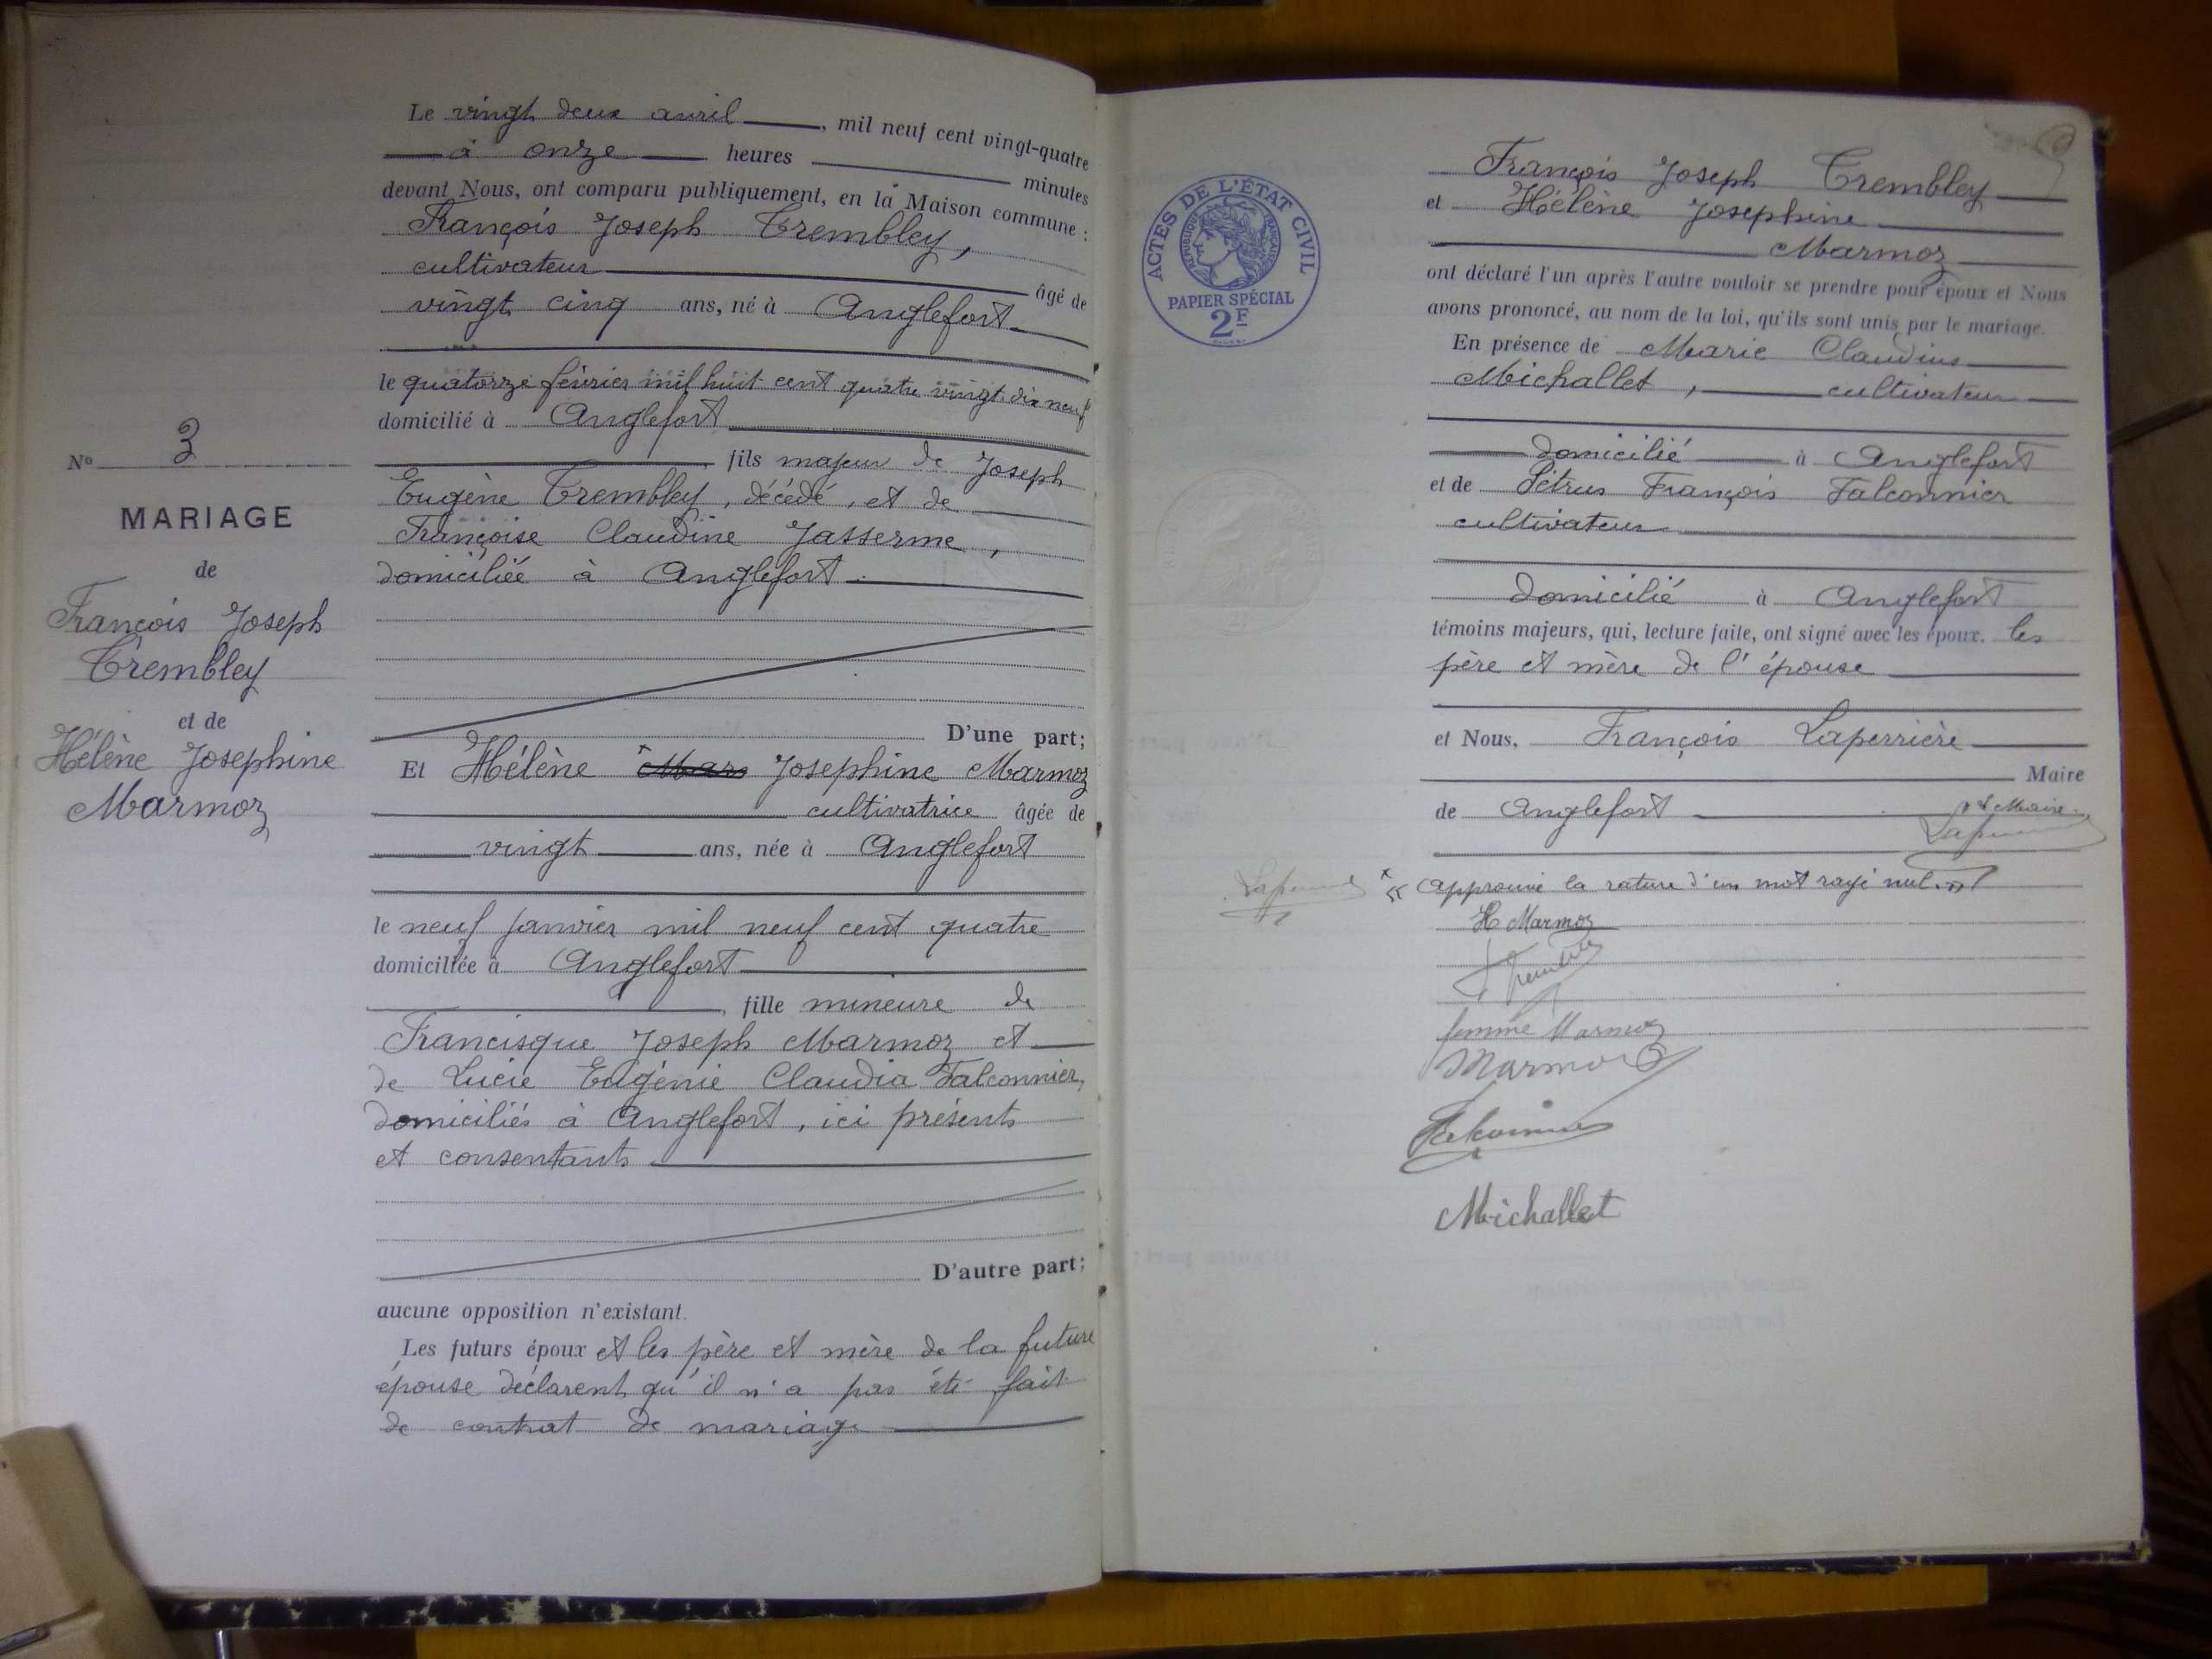 Nº 3
MARIAGE
de
François Joseph
Trembley
et de
Hélène Josephine
Marmoz
Le vingt deux avril, mil neuf cent vingt-quatre
à onze heures minutes
devant Nous, ont comparu publiquement, en la Maison commune :
François Joseph Trembley,
cultivateur âgé de
vingt cinq ans, né à Anglefort
le quatorze février mil huit cent quatre vingt dix neuf
domicilié à Anglefort
, fils majeur de Joseph
Eugène Trembley, décédé, et de
Françoise Claudine Jasserme,
domiciliée à Anglefort.
D'une part;
Et Hélène Mars Josephine Marmoz
cultivatrice âgée de
vingt ans, née à Anglefort
le neuf janvier mil neuf cent quatre
domiciliée à Anglefort
, fille mineure de
Francisque Joseph Marmoz et
de Lucie Eugénie Claudia Falconnier,
domiciliés à Anglefort, ici présents
et consentants
D'autre part;
aucune opposition n'existant.
Les futurs époux et les père et mère de la future
épouse déclarent qu'il n'a pas été fait
de contrat de mariage
ACTES DE L'ÉTAT CIVIL
RÉPUBLIQUE FRANÇAISE
PAPIER SPÉCIAL
2F
François Joseph Trembley
et Hélène Josephine
Marmoz
ont déclaré l'un après l'autre vouloir se prendre pour époux et Nous
avons prononcé, au nom de la loi, qu'ils sont unis par le mariage.
En présence de Marie Claudius
Michallet, cultivateur
domicilié à Anglefort
et de Pétrus François Falconnier
cultivateur
domicilié à Anglefort
témoins majeurs, qui, lecture faite, ont signé avec les époux, les
père et mère de l'épouse
et Nous, François Laperrière
Maire
de Anglefort
Maire
× « Approuvé la rature d'un mot rayé nul. »
H Marmoz
femme Marmoz
Marmoz
Falconnier
Michallet